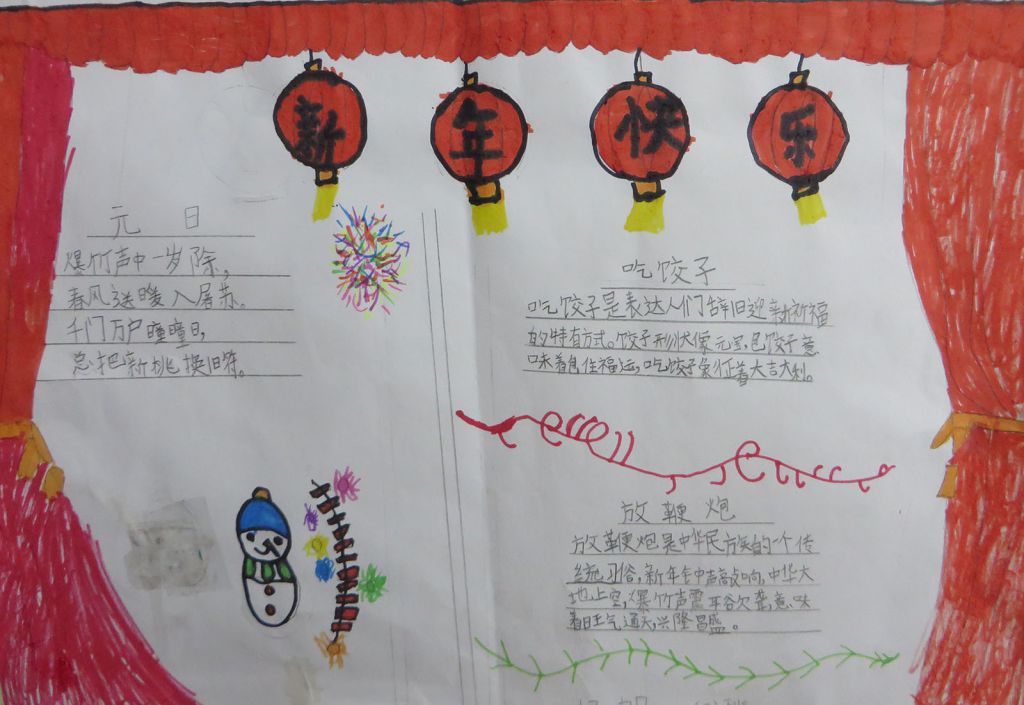 新年快乐
元 日
爆竹声中一岁除，
春风送暖入屠苏。
千门万户曈曈日，
总把新桃换旧符。
吃饺子
吃饺子是表达人们辞旧迎新祈福
的特有方式。饺子形状像元宝，包饺子意
味着包住福运，吃饺子象征着大吉大利。
放鞭炮
放鞭炮是中华民族的一个传
统习俗，新年钟声敲响，中华大
地上空，爆竹声震耳欲聋，意味
着旺气通天，兴隆昌盛。